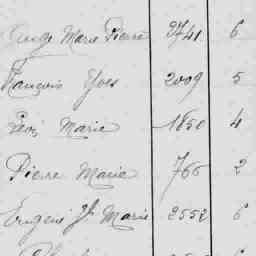 Ange Marie Pierre 3741 6
François Yves 2009 5
Marie 1850 4
Pierre Marie 766 2
Eugène Jn Marie 2552 6